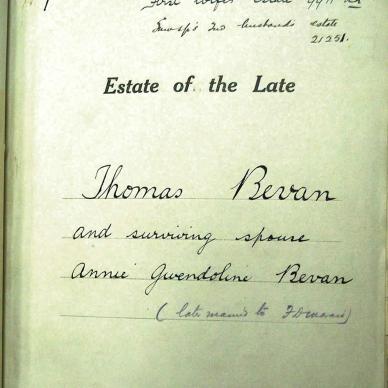 First wife's estate
Surv sp's 2nd husband's estate
21251.
Estate of the Late
Thomas Bevan
and surviving spouse
Annie Gwendoline Bevan
( later married to